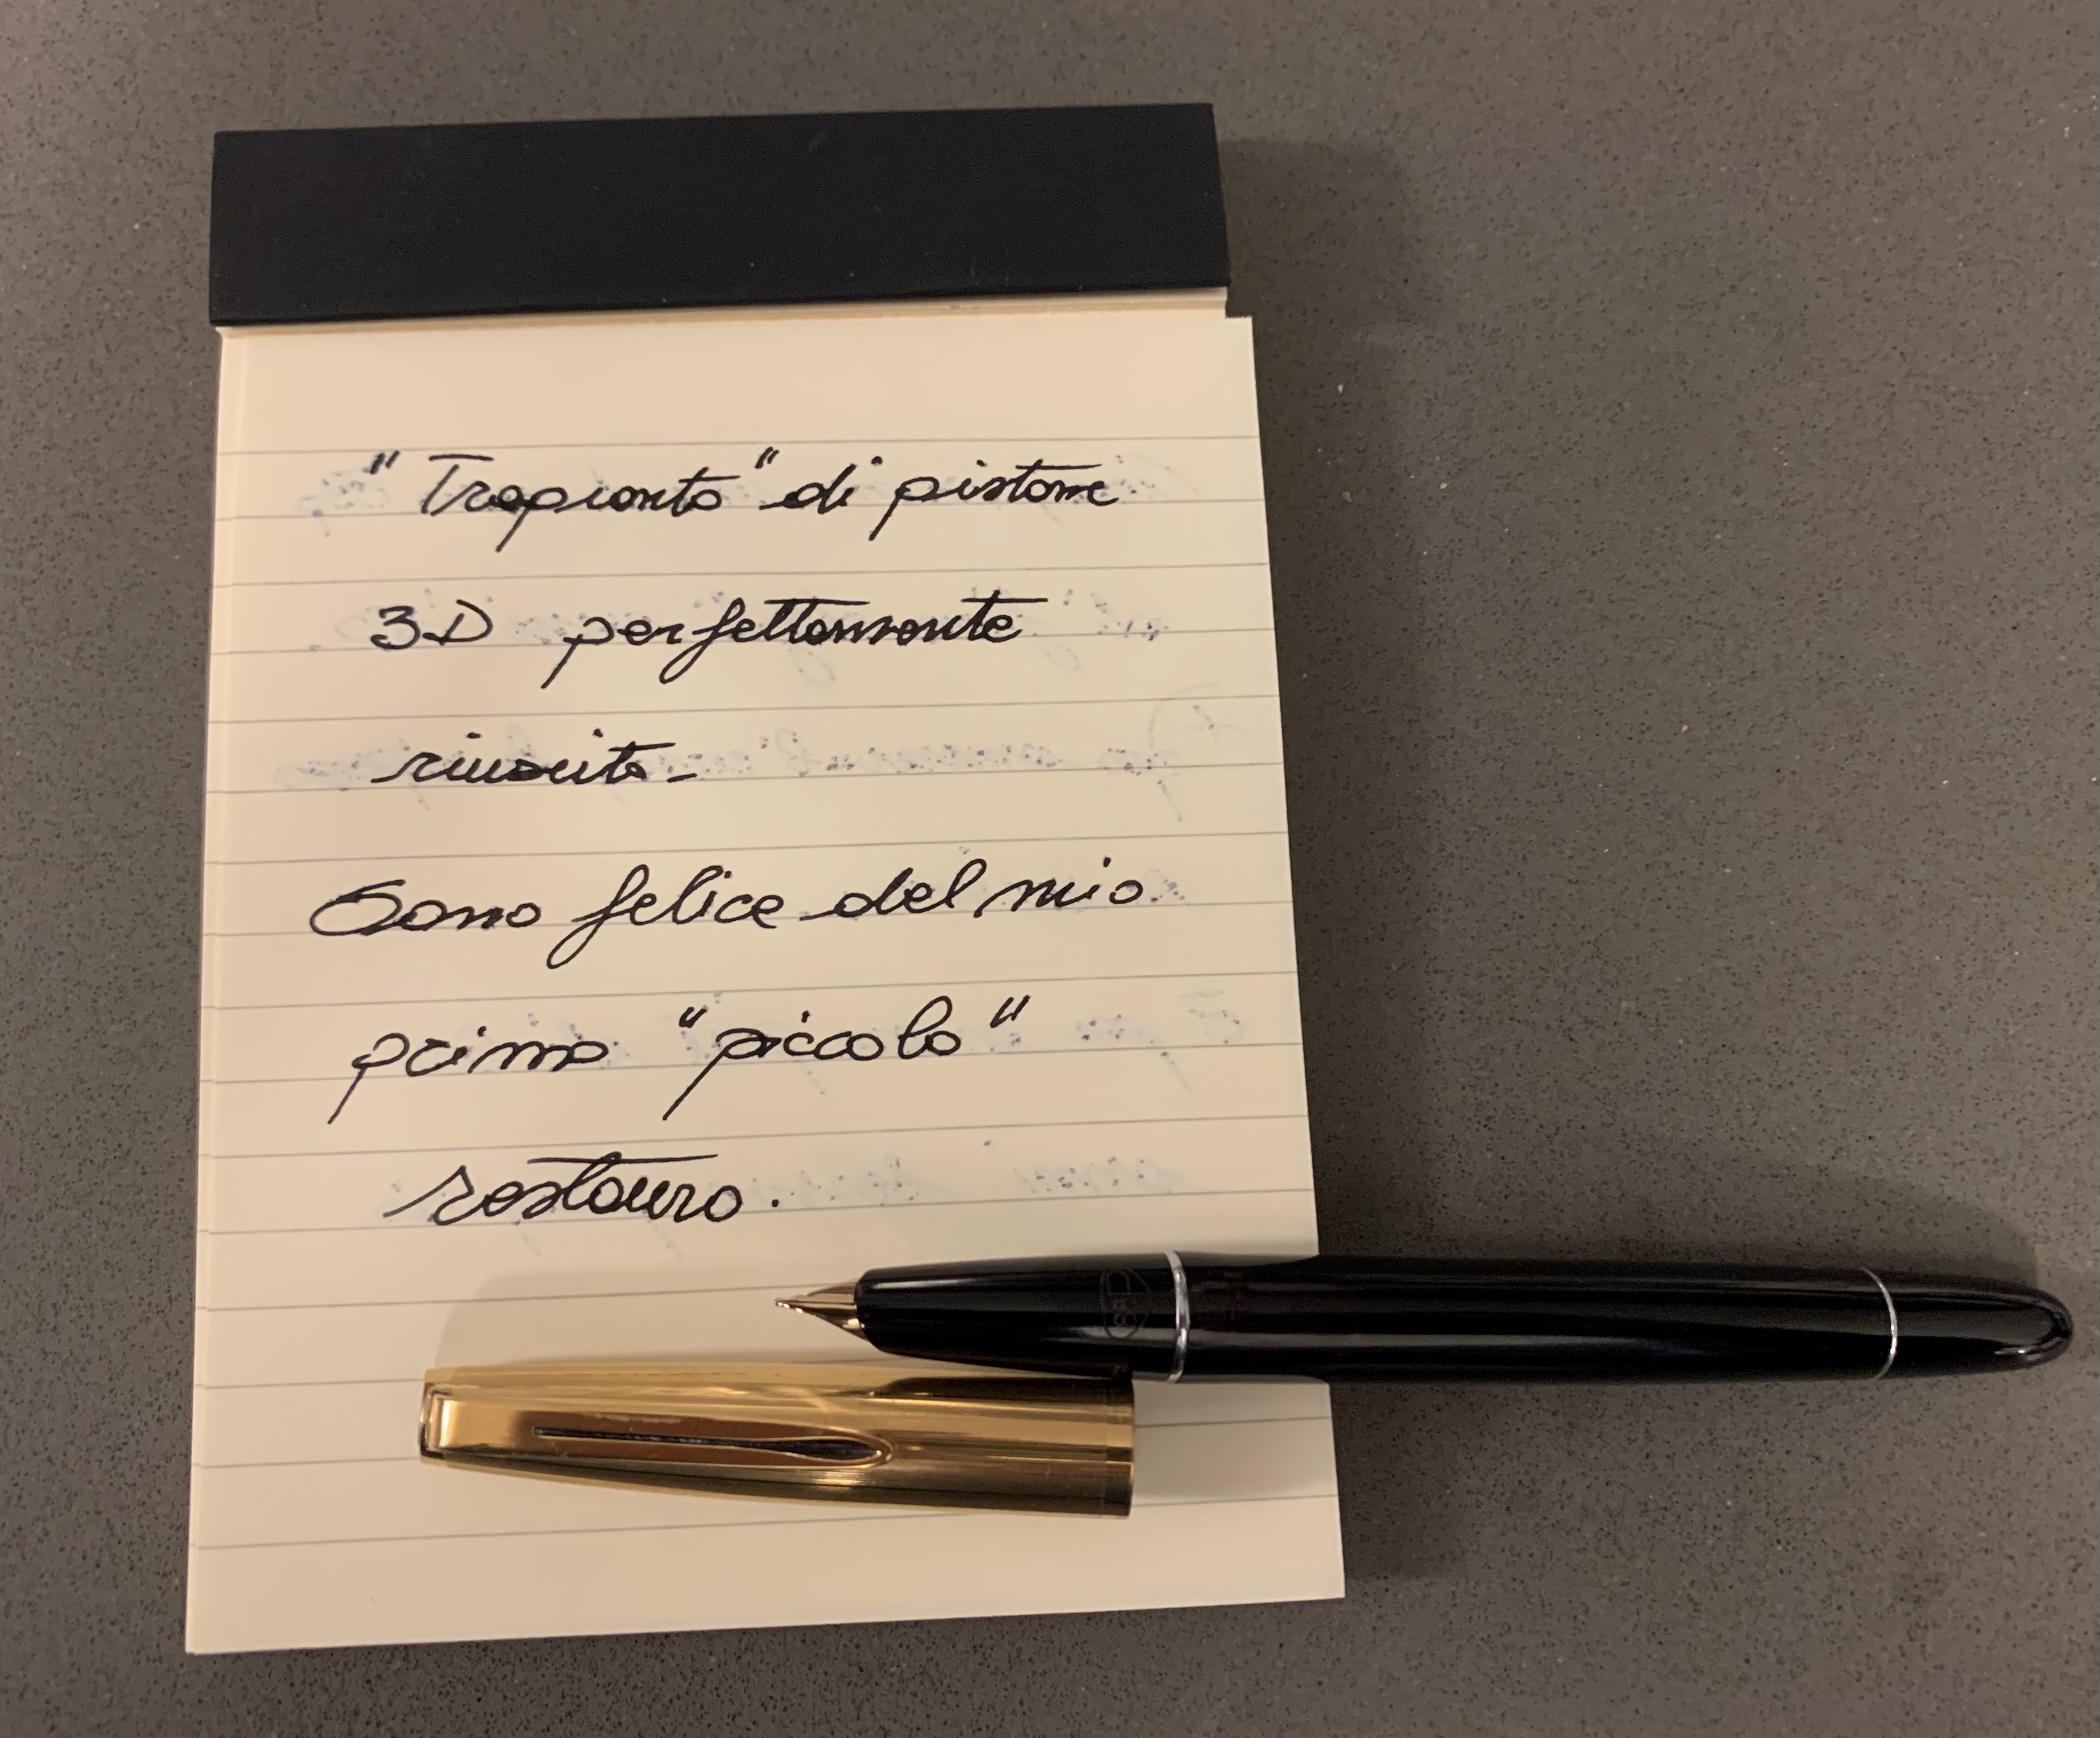 "Trapianto" di pistone
3D perfettamente
riuscito-
Sono felice del mio
primo "piccolo"
restauro.